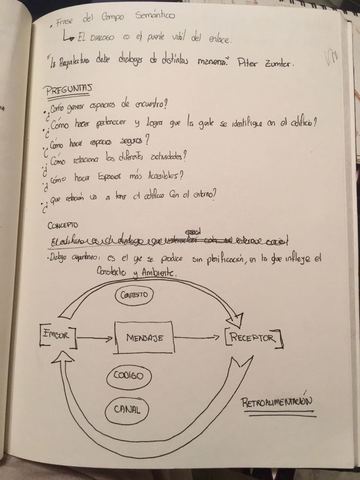 • Frase del Campo Semántico
↳ EL DIALOGO es el puente vital del enlace.
"La Arquitectura debe dialogar de distintas maneras." Piter Zumtor.
PREGUNTAS
• ¿Como generar espacios de encuentro?
• ¿Cómo hacer pertenecer y lograr que la gente se identifique en el edificio?
• ¿Cómo hacer espacios seguros?
• ¿Cómo relaciona las diferentes actividades?
• ¿Cómo hacer Espacios más Accesibles?
• ¿Que relación va a tener el edificio con el entorno?
CONCEPTO
El edificio es un dialogo que
• Dialogo espontaneo: es el que se produce sin planificación, en lo que influye el
Contexto y Ambiente.
CONTEXTO
EMISOR
MENSAJE
RECEPTOR
CODIGO
CANAL
RETROALIMENTACIÓN